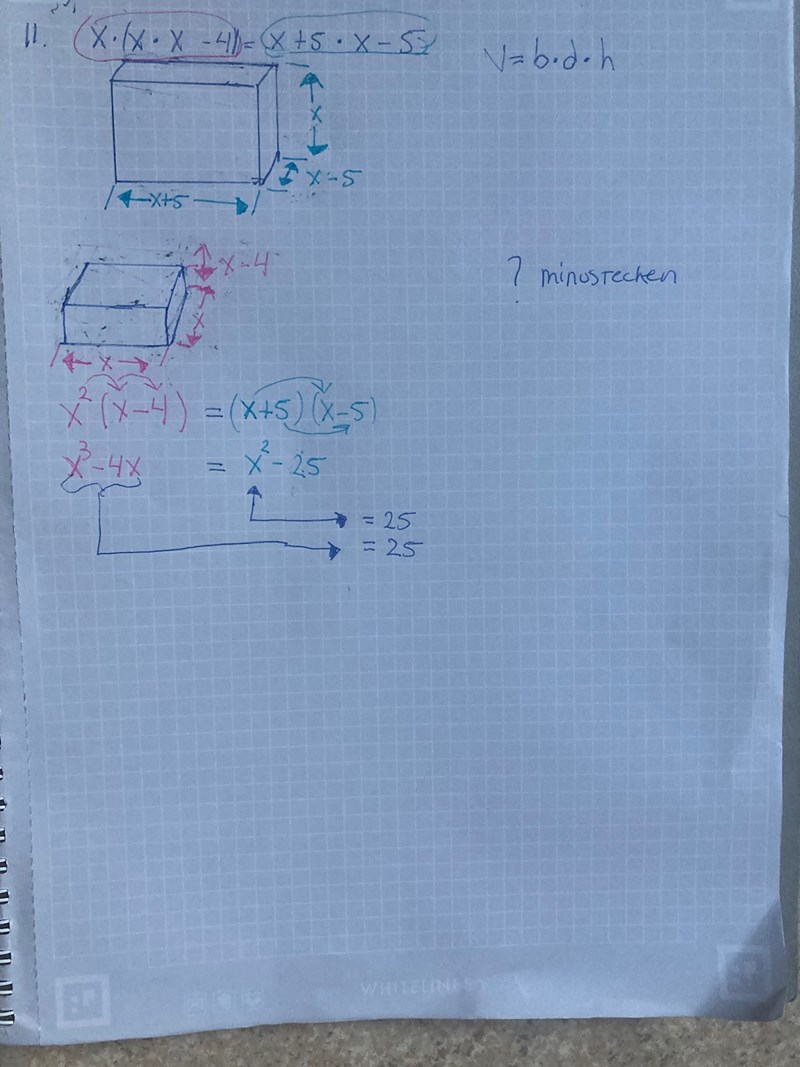 11. x·(x·x-4) = x+5·x-5
V=b·d·h
x
x-5
x+5
x-4
? minustecken
x
x
x²(x-4) = (x+5)(x-5)
x³-4x = x²-25
= 25
= 25
WHITELINES